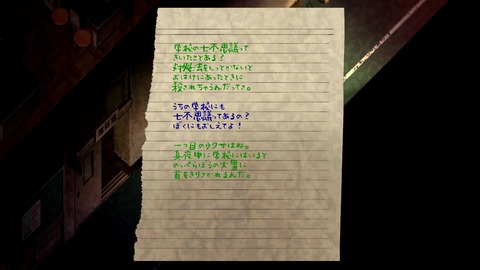 学校の七不思議って
きいたことある？
対処法をしっとかないと
おばけにあったときに
殺されちゃうんだってさ。
うちの学校にも
七不思議ってあるの？
ぼくにもおしえてよ！
一つ目のウワサはね。
真夜中に学校にはいると
のっぺらぼうの大男に
首をきりさかれるんだ。